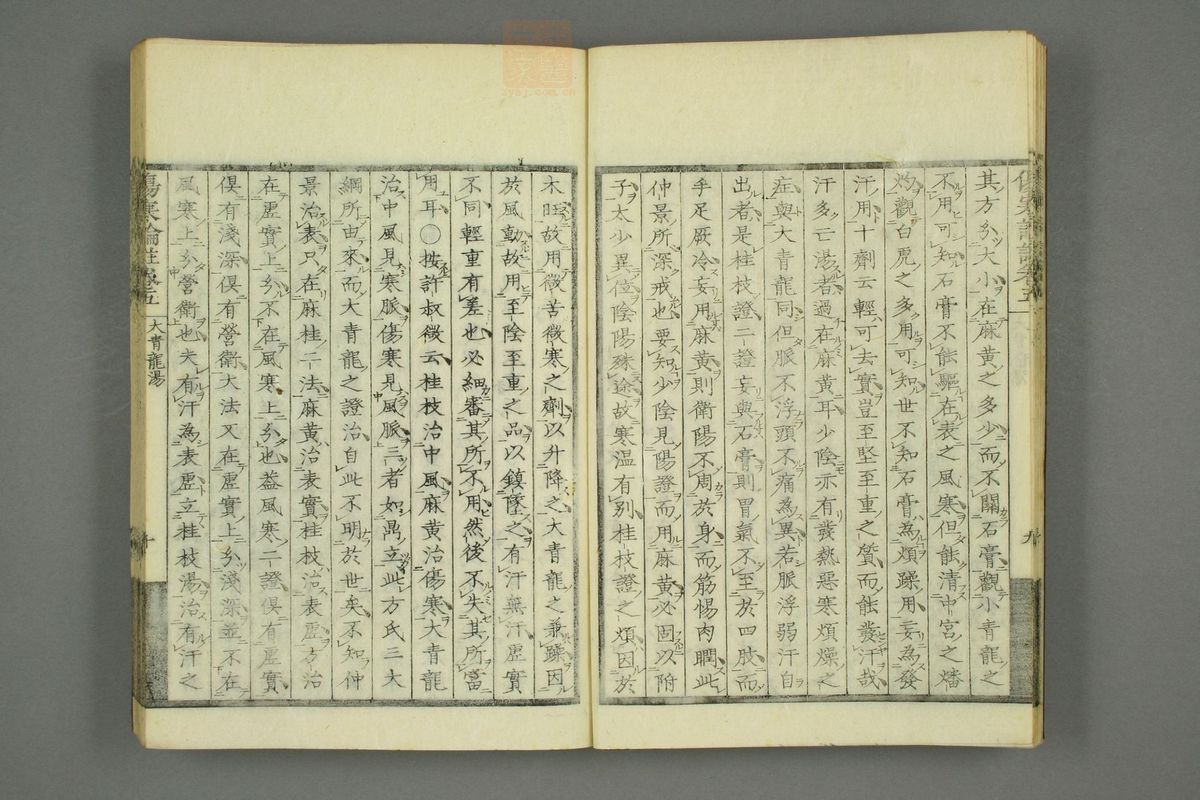 其方分大小在麻黃之多少而不關石膏觀小青龍之
不用可知石膏不能驅在表之風寒但能清中宮之燔
灼觀白虎之多用可知世不知石膏為煩躁用妄為發
汗用十劑云輕可去實豈至堅至重之質而能發汗哉
汗多亡陽者過在麻黃耳少陰亦有發熱惡寒煩燥之
症與大青龍同但脈不浮頭不痛為異若脈浮弱汗自
出者是桂枝證二證妄與石膏則胃氣不至於四肢而
手足厥冷妄用麻黃則衛陽不周於身而筋惕肉瞤此
仲景所深戒也要知少陰見陽證而用麻黃必固以附
子太少異位陰陽殊途故寒温有别桂枝證之煩因於
木旺故用微苦微寒之劑以升降之大青龍之兼躁因
於風動故用至陰至重之品以鎮墜之有汗無汗虛實
不同輕重有差也必細審其所不用然後不失其所當
用耳○按許叔微云桂枝治中風麻黃治傷寒大青龍
治中風見寒脈傷寒見風脈三者如鼎立此方氏三大
綱所由來而大青龍之證治自此不明於世矣不知仲
景治表只在麻桂二法麻黃治表實桂枝治表虛方治
在虛實上分不在風寒上分也蓋風寒二證俱有虛實
俱有淺深俱有營衛大法又在虛實上分淺深並不在
風寒上分營衛也夫有汗為表虛立桂枝湯治有汗之
傷寒論註卷五
大青龍湯